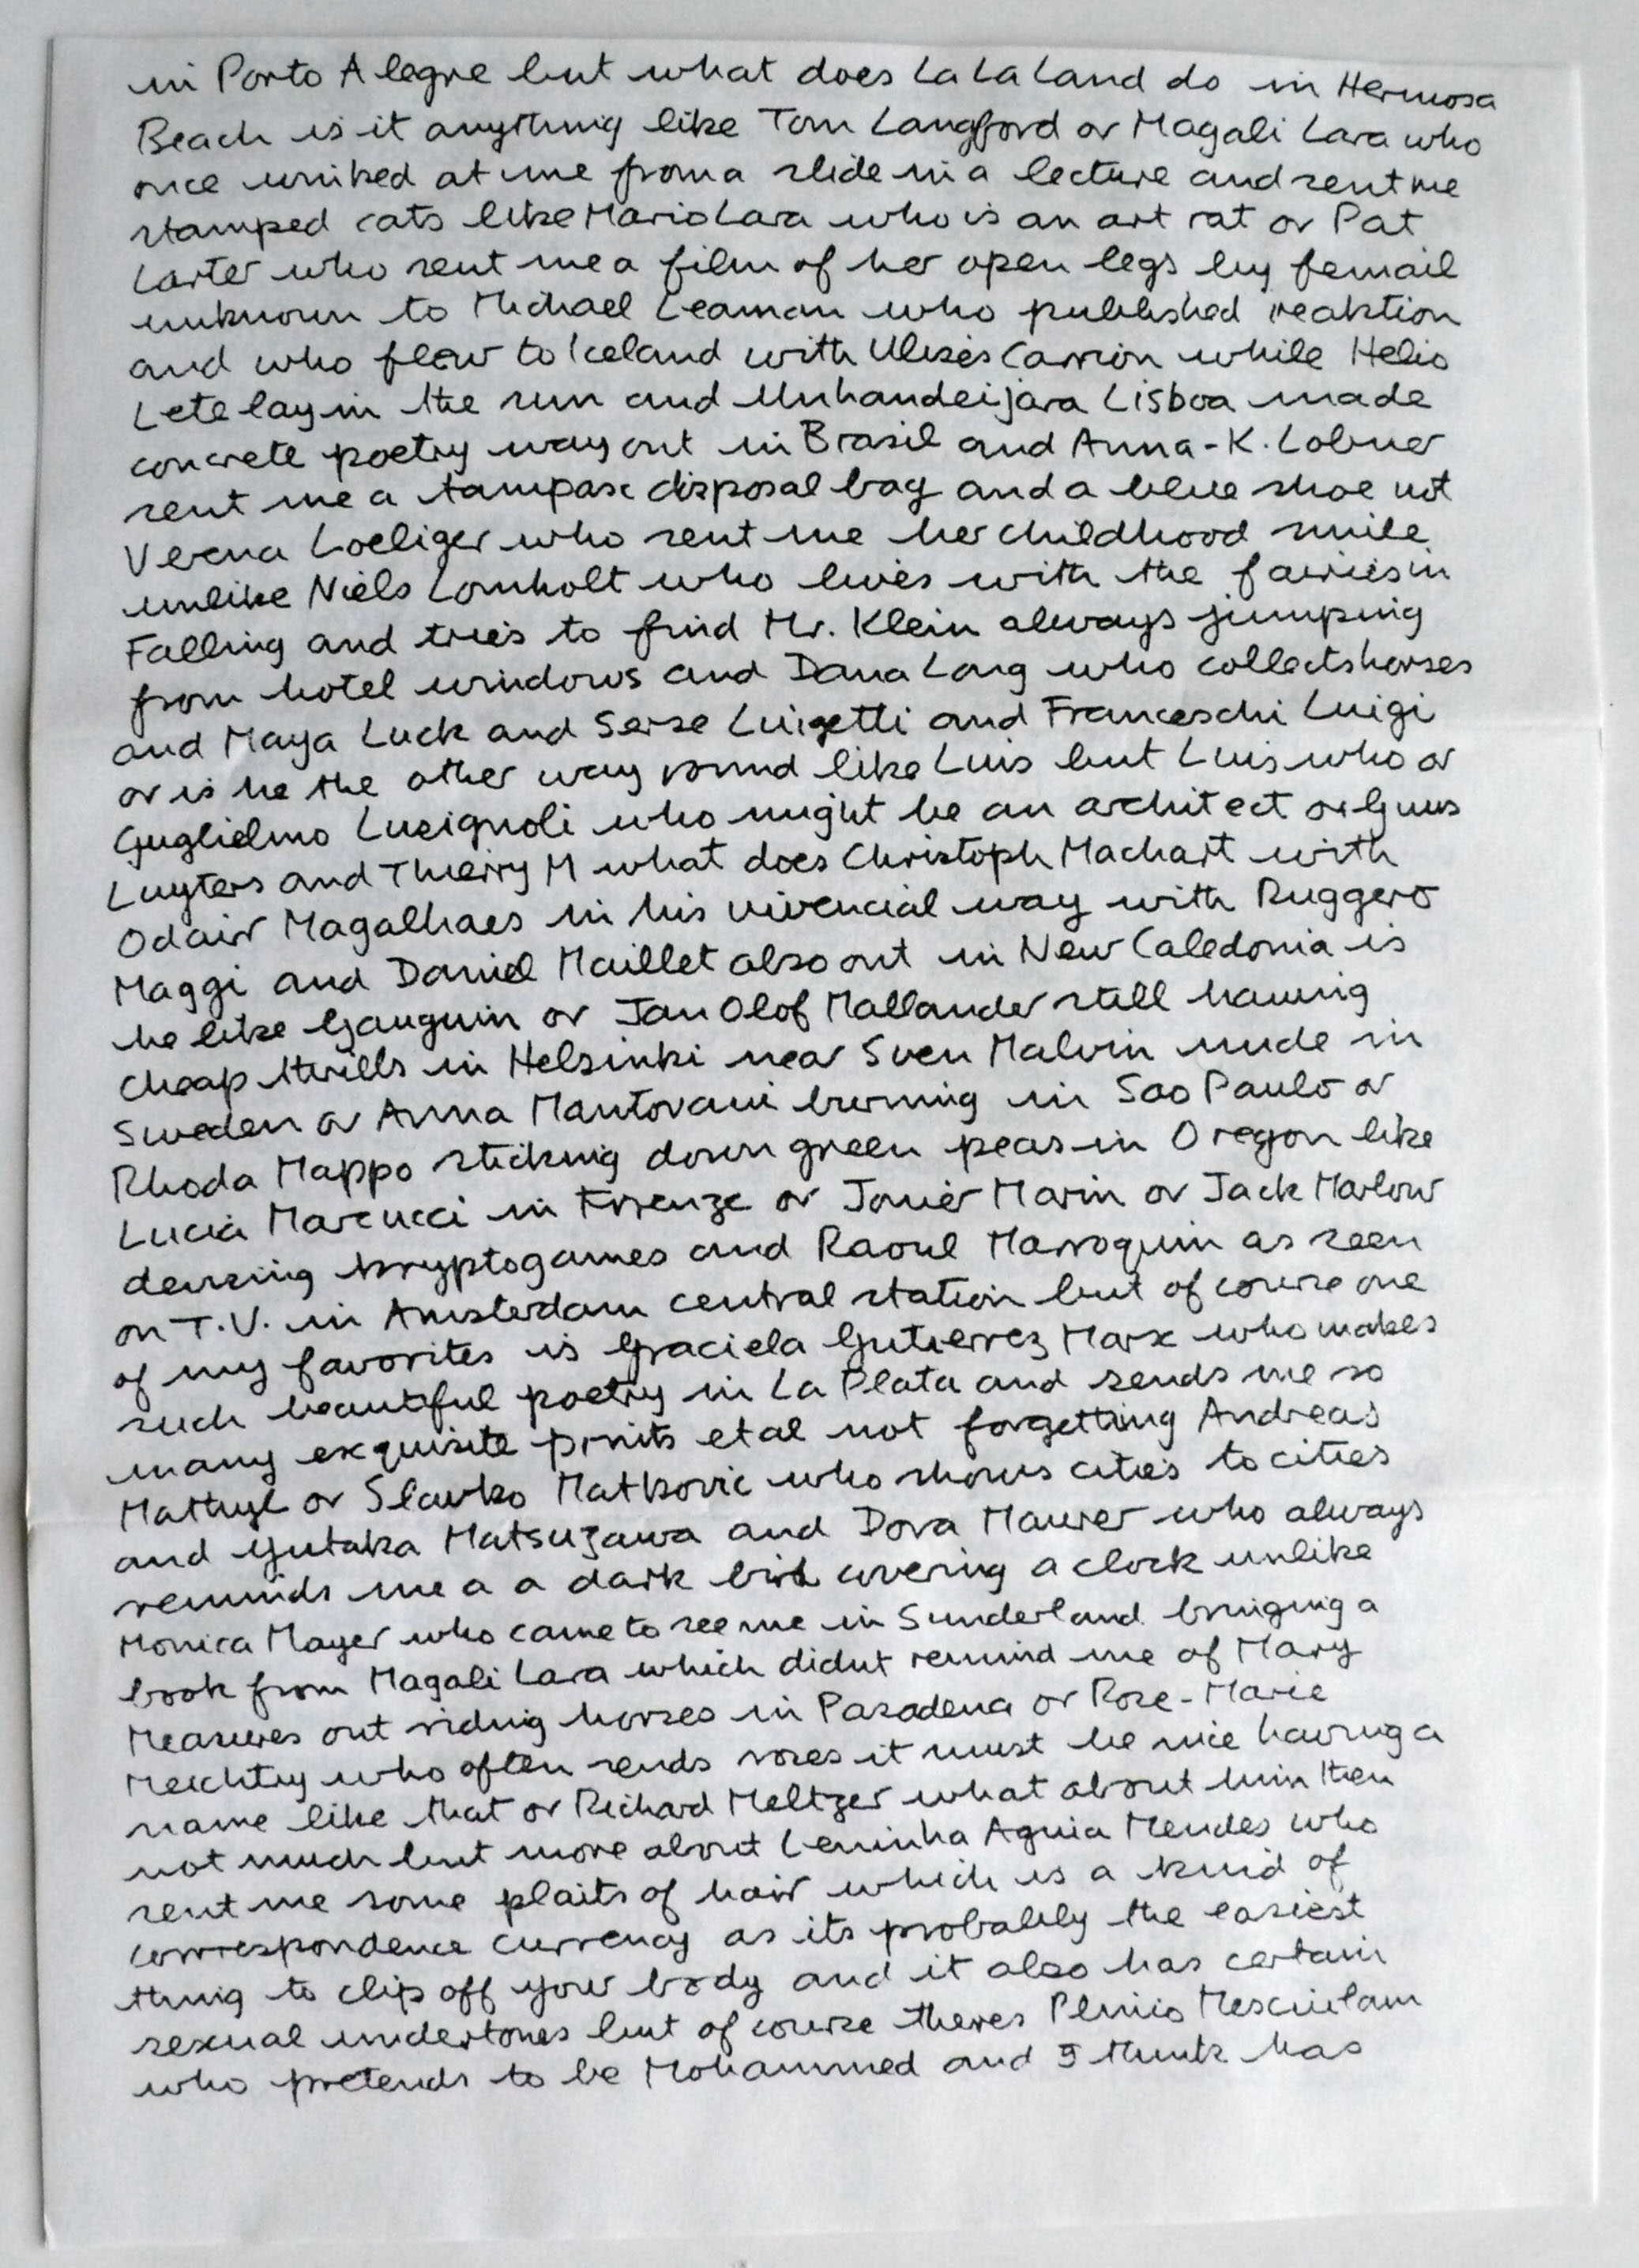 in Porto Alegre but what does La La Land do in Hermosa
Beach is it anything like Tom Langford or Magali Lara who
once winked at me from a slide in a lecture and sent me
stamped cats like Mario Lara who is an art rat or Pat
Larter who sent me a film of her open legs by femail
unknown to Michael Leaman who published reaktion
and who flew to Iceland with Ulises Carrion while Helio
Lete lay in the sun and Unhandeijara Lisboa made
concrete poetry way out in Brasil and Anna-K. Lobner
sent me a tampax disposal bag and a blue shoe not
Verena Loeliger who sent me her childhood smile
unlike Niels Lomholt who lives with the fairies in
Falling and tries to find Mr. Klein always jumping
from hotel windows and Dana Long who collects horses
and Maya Luck and Serse Luigetti and Franceschi Luigi
or is he the other way round like Luis but Luis who or
Guglielmo Lusignoli who might be an architect or Guus
Luyters and Thierry M what does Christoph Machart with
Odair Magalhaes in his vivencial way with Ruggero
Maggi and Daniel Maillet also out in New Caledonia is
he like Gauguin or Jan Olof Mallander still having
cheap thrills in Helsinki near Sven Malvin nude in
Sweden or Anna Mantovani burning in Sao Paulo or
Rhoda Mappo sticking down green peas in Oregon like
Lucia Marcucci in Firenze or Javier Marin or Jack Marlow
devising kryptogames and Raoul Marroquin as seen
on T.V. in Amsterdam central station but of course one
of my favorites is Graciela Gutierrez Marx who makes
such beautiful poetry in La Plata and sends me so
many exquisite prints et al not forgetting Andreas
Mathyl or Slavko Matkovic who shows cities to cities
and Yutaka Matsuzawa and Dora Maurer who always
reminds me a a dark bird covering a clock unlike
Monica Mayer who came to see me in Sunderland bringing a
book from Magali Lara which didnt remind me of Mary
Measures out riding horses in Pasadena or Rose-Marie
Meichtry who often sends roses it must be nice having a
name like that or Richard Meltzer what about him then
not much but more about Leninha Aguia Mendes who
sent me some plaits of hair which is a kind of
correspondence currency as its probably the easiest
thing to clip off your body and it also has certain
sexual undertones but of course theres Plinio Mesciulam
who pretends to be Mohammed and I think has